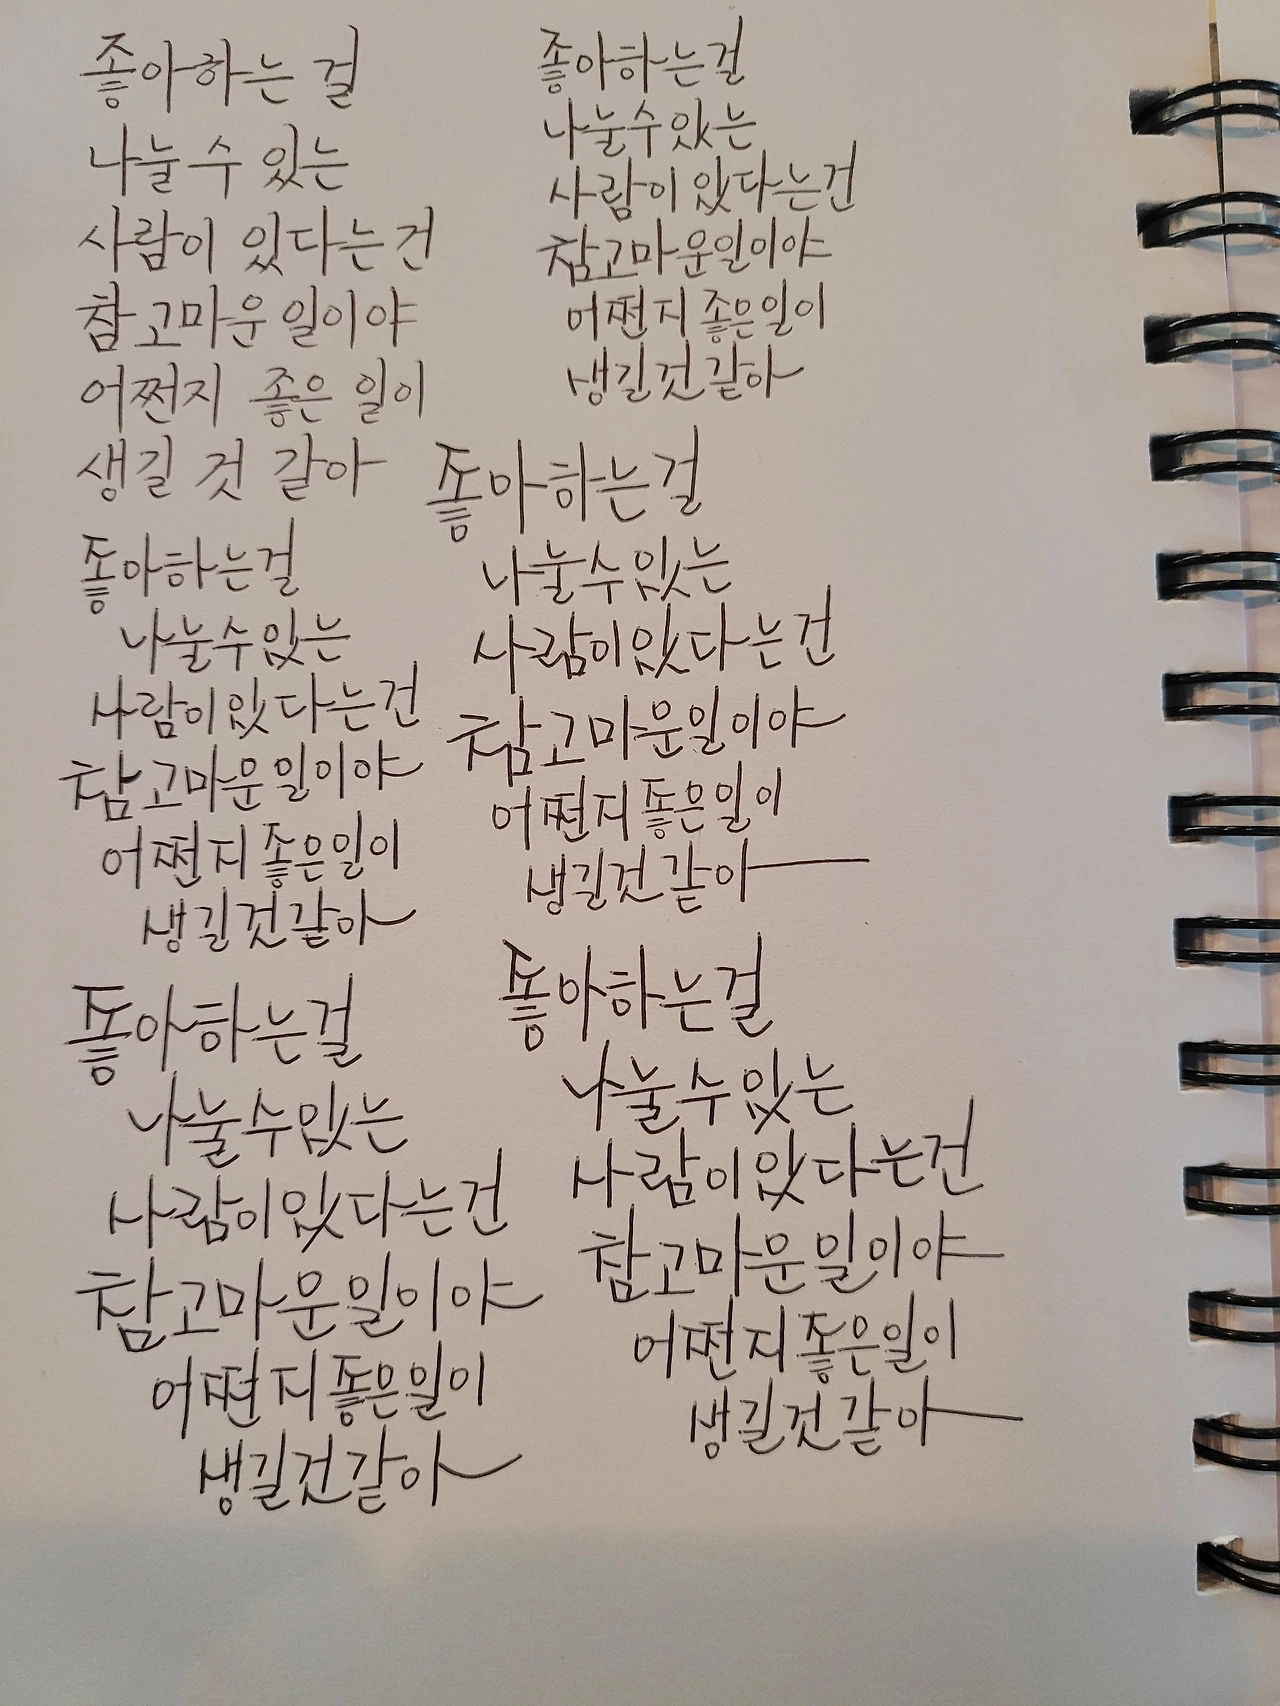 좋아하는 걸
나눌 수 있는
사람이 있다는 건
참 고마운 일이야
어쩐지 좋은 일이
생길 것 같아
좋아하는걸
나눌수있는
사람이 있다는건
참고마운일이야
어쩐지 좋은일이
생길것같아
좋아하는걸
나눌수있는
사람이있다는건
참고마운일이야
어쩐지좋은일이
생길것같아
좋아하는걸
나눌수있는
사람이있다는건
참고마운일이야
어쩐지좋은일이
생길것같아
좋아하는걸
나눌수있는
사람이있다는건
참고마운일이야
어쩐지좋은일이
생길것같아
좋아하는걸
나눌수있는
사람이있다는건
참고마운일이야
어쩐지좋은일이
생길것같아